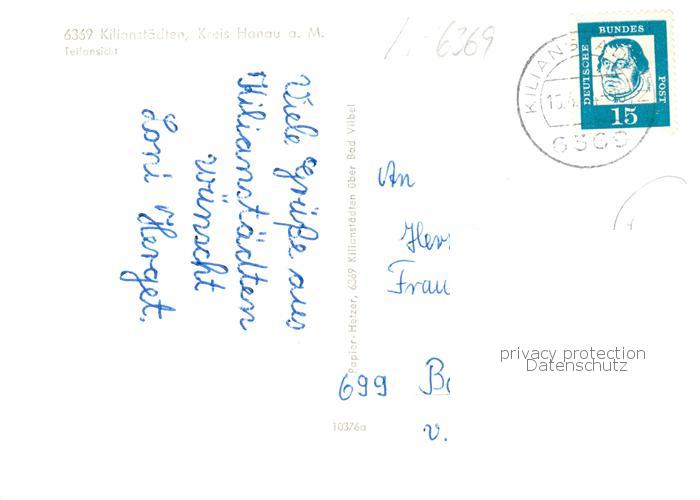 6369 Kilianstädten, Kreis Hanau a. M.
Teilansicht
6369
DEUTSCHE BUNDES POST
15
KILIANS
6369
Viele Grüße aus
Kilianstädten
wünscht
Loni Herget.
Papier-Hetzer, 6369 Kilianstädten über Bad Vilbel
An
Herr
Frau
699 B
v.
10376a
privacy protection
Datenschutz